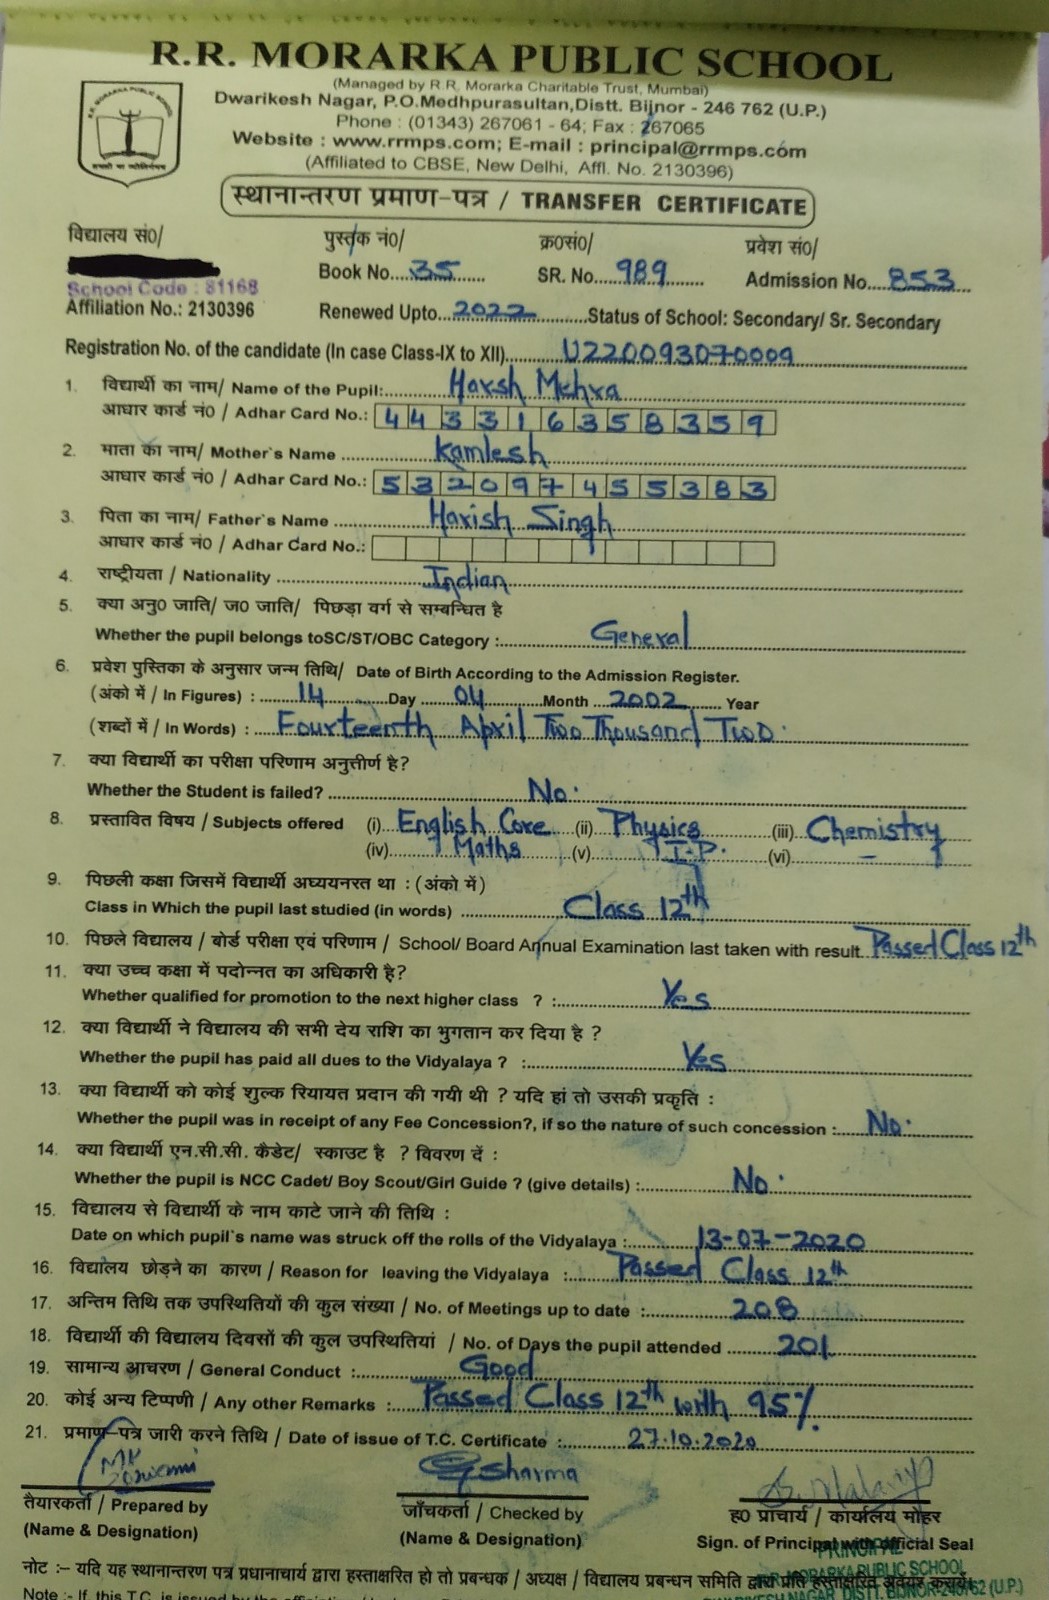 R.R. MORARKA PUBLIC SCHOOL
(Managed by R.R. Morarka Charitable Trust, Mumbai)
Dwarikesh Nagar, P.O.Medhpurasultan,Distt. Bijnor - 246 762 (U.P.)
Phone : (01343) 267061 - 64; Fax : 267065
Website : www.rrmps.com; E-mail : principal@rrmps.com
(Affiliated to CBSE, New Delhi, Affl. No. 2130396)
स्थानान्तरण प्रमाण-पत्र / TRANSFER CERTIFICATE
विद्यालय सं0/ पुस्तक नं0/ क्र0सं0/ प्रवेश सं0/
Book No....35...... SR. No...989....... Admission No....853...
School Code : 81168
Affiliation No.: 2130396 Renewed Upto...2022............Status of School: Secondary/ Sr. Secondary
Registration No. of the candidate (In case Class-IX to XII)........U220093070009
1. विद्यार्थी का नाम/ Name of the Pupil:......Harsh Mehra
आधार कार्ड नं0 / Adhar Card No.: 443316358359
2. माता का नाम/ Mother`s Name ........Kamlesh
आधार कार्ड नं0 / Adhar Card No.: 532097455383
3. पिता का नाम/ Father`s Name ........Harish Singh
आधार कार्ड नं0 / Adhar Card No.:
4. राष्ट्रीयता / Nationality ........Indian
5. क्या अनु0 जाति/ ज0 जाति/ पिछड़ा वर्ग से सम्बन्धित है
Whether the pupil belongs toSC/ST/OBC Category :........General
6. प्रवेश पुस्तिका के अनुसार जन्म तिथि/ Date of Birth According to the Admission Register.
(अंको में / In Figures) : ....14......Day ....04......Month ...2002...... Year
(शब्दों में / In Words) : ...Fourteenth April Two Thousand Two.
7. क्या विद्यार्थी का परीक्षा परिणाम अनुत्तीर्ण है?
Whether the Student is failed? ........No.
8. प्रस्तावित विषय / Subjects offered (i)...English Core (ii) Physics (iii) Chemistry
(iv)...Maths (v)...I.P. (vi)...–
9. पिछली कक्षा जिसमें विद्यार्थी अघ्ययनरत था : (अंको में)
Class in Which the pupil last studied (in words) ........Class 12th
10. पिछले विद्यालय / बोर्ड परीक्षा एवं परिणाम / School/ Board Annual Examination last taken with result..Passed Class 12th
11. क्या उच्च कक्षा में पदोन्नत का अधिकारी है?
Whether qualified for promotion to the next higher class ? :........Yes
12. क्या विद्यार्थी ने विद्यालय की सभी देय राशि का भुगतान कर दिया है ?
Whether the pupil has paid all dues to the Vidyalaya ? :........Yes
13. क्या विद्यार्थी को कोई शुल्क रियायत प्रदान की गयी थी ? यदि हां तो उसकी प्रकृति :
Whether the pupil was in receipt of any Fee Concession?, if so the nature of such concession :.....No.
14. क्या विद्यार्थी एन.सी.सी. कैडेट/ स्काउट है ? विवरण दें :
Whether the pupil is NCC Cadet/ Boy Scout/Girl Guide ? (give details) :........No.
15. विद्यालय से विद्यार्थी के नाम काटे जाने की तिथि :
Date on which pupil`s name was struck off the rolls of the Vidyalaya :........13-07-2020
16. विद्यालय छोड़ने का कारण / Reason for leaving the Vidyalaya :......Passed Class 12th
17. अन्तिम तिथि तक उपस्थितियों की कुल संख्या / No. of Meetings up to date :........208
18. विद्यार्थी की विद्यालय दिवसों की कुल उपस्थितियां / No. of Days the pupil attended ........201
19. सामान्य आचरण / General Conduct :........Good
20. कोई अन्य टिप्पणी / Any other Remarks :....Passed Class 12th with 95%.
21. प्रमाण-पत्र जारी करने तिथि / Date of issue of T.C. Certificate :........27.10.2020
MK Goswami Sharma
तैयारकर्ता / Prepared by जाँचकर्ता / Checked by ह0 प्राचार्य / कार्यालय मोहर
(Name & Designation) (Name & Designation) Sign. of Principal with official Seal
PRINCIPAL
R.R. MORARKA PUBLIC SCHOOL
नोट :– यदि यह स्थानान्तरण पत्र प्रधानाचार्य द्वारा हस्ताक्षरित हो तो प्रबन्धक / अध्यक्ष / विद्यालय प्रबन्धन समिति द्वारा प्रति हस्ताक्षरित अवश्य करायें।
DWARIKESH NAGAR, DISTT. BIJNOR-246762 (U.P.)
Note :- If, this T.C. is issued by the